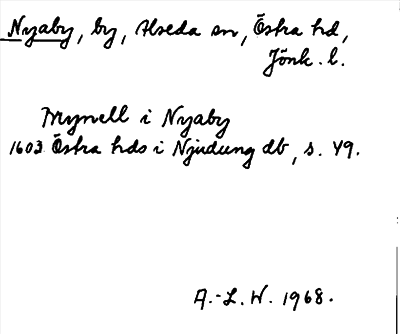 Nyaby, by, Alseda sn, Östra hd,
Jönk. l.
Mynell i Nyaby
1603 Östra hds i Njudung db, s. 49.
A.-L. W. 1968.